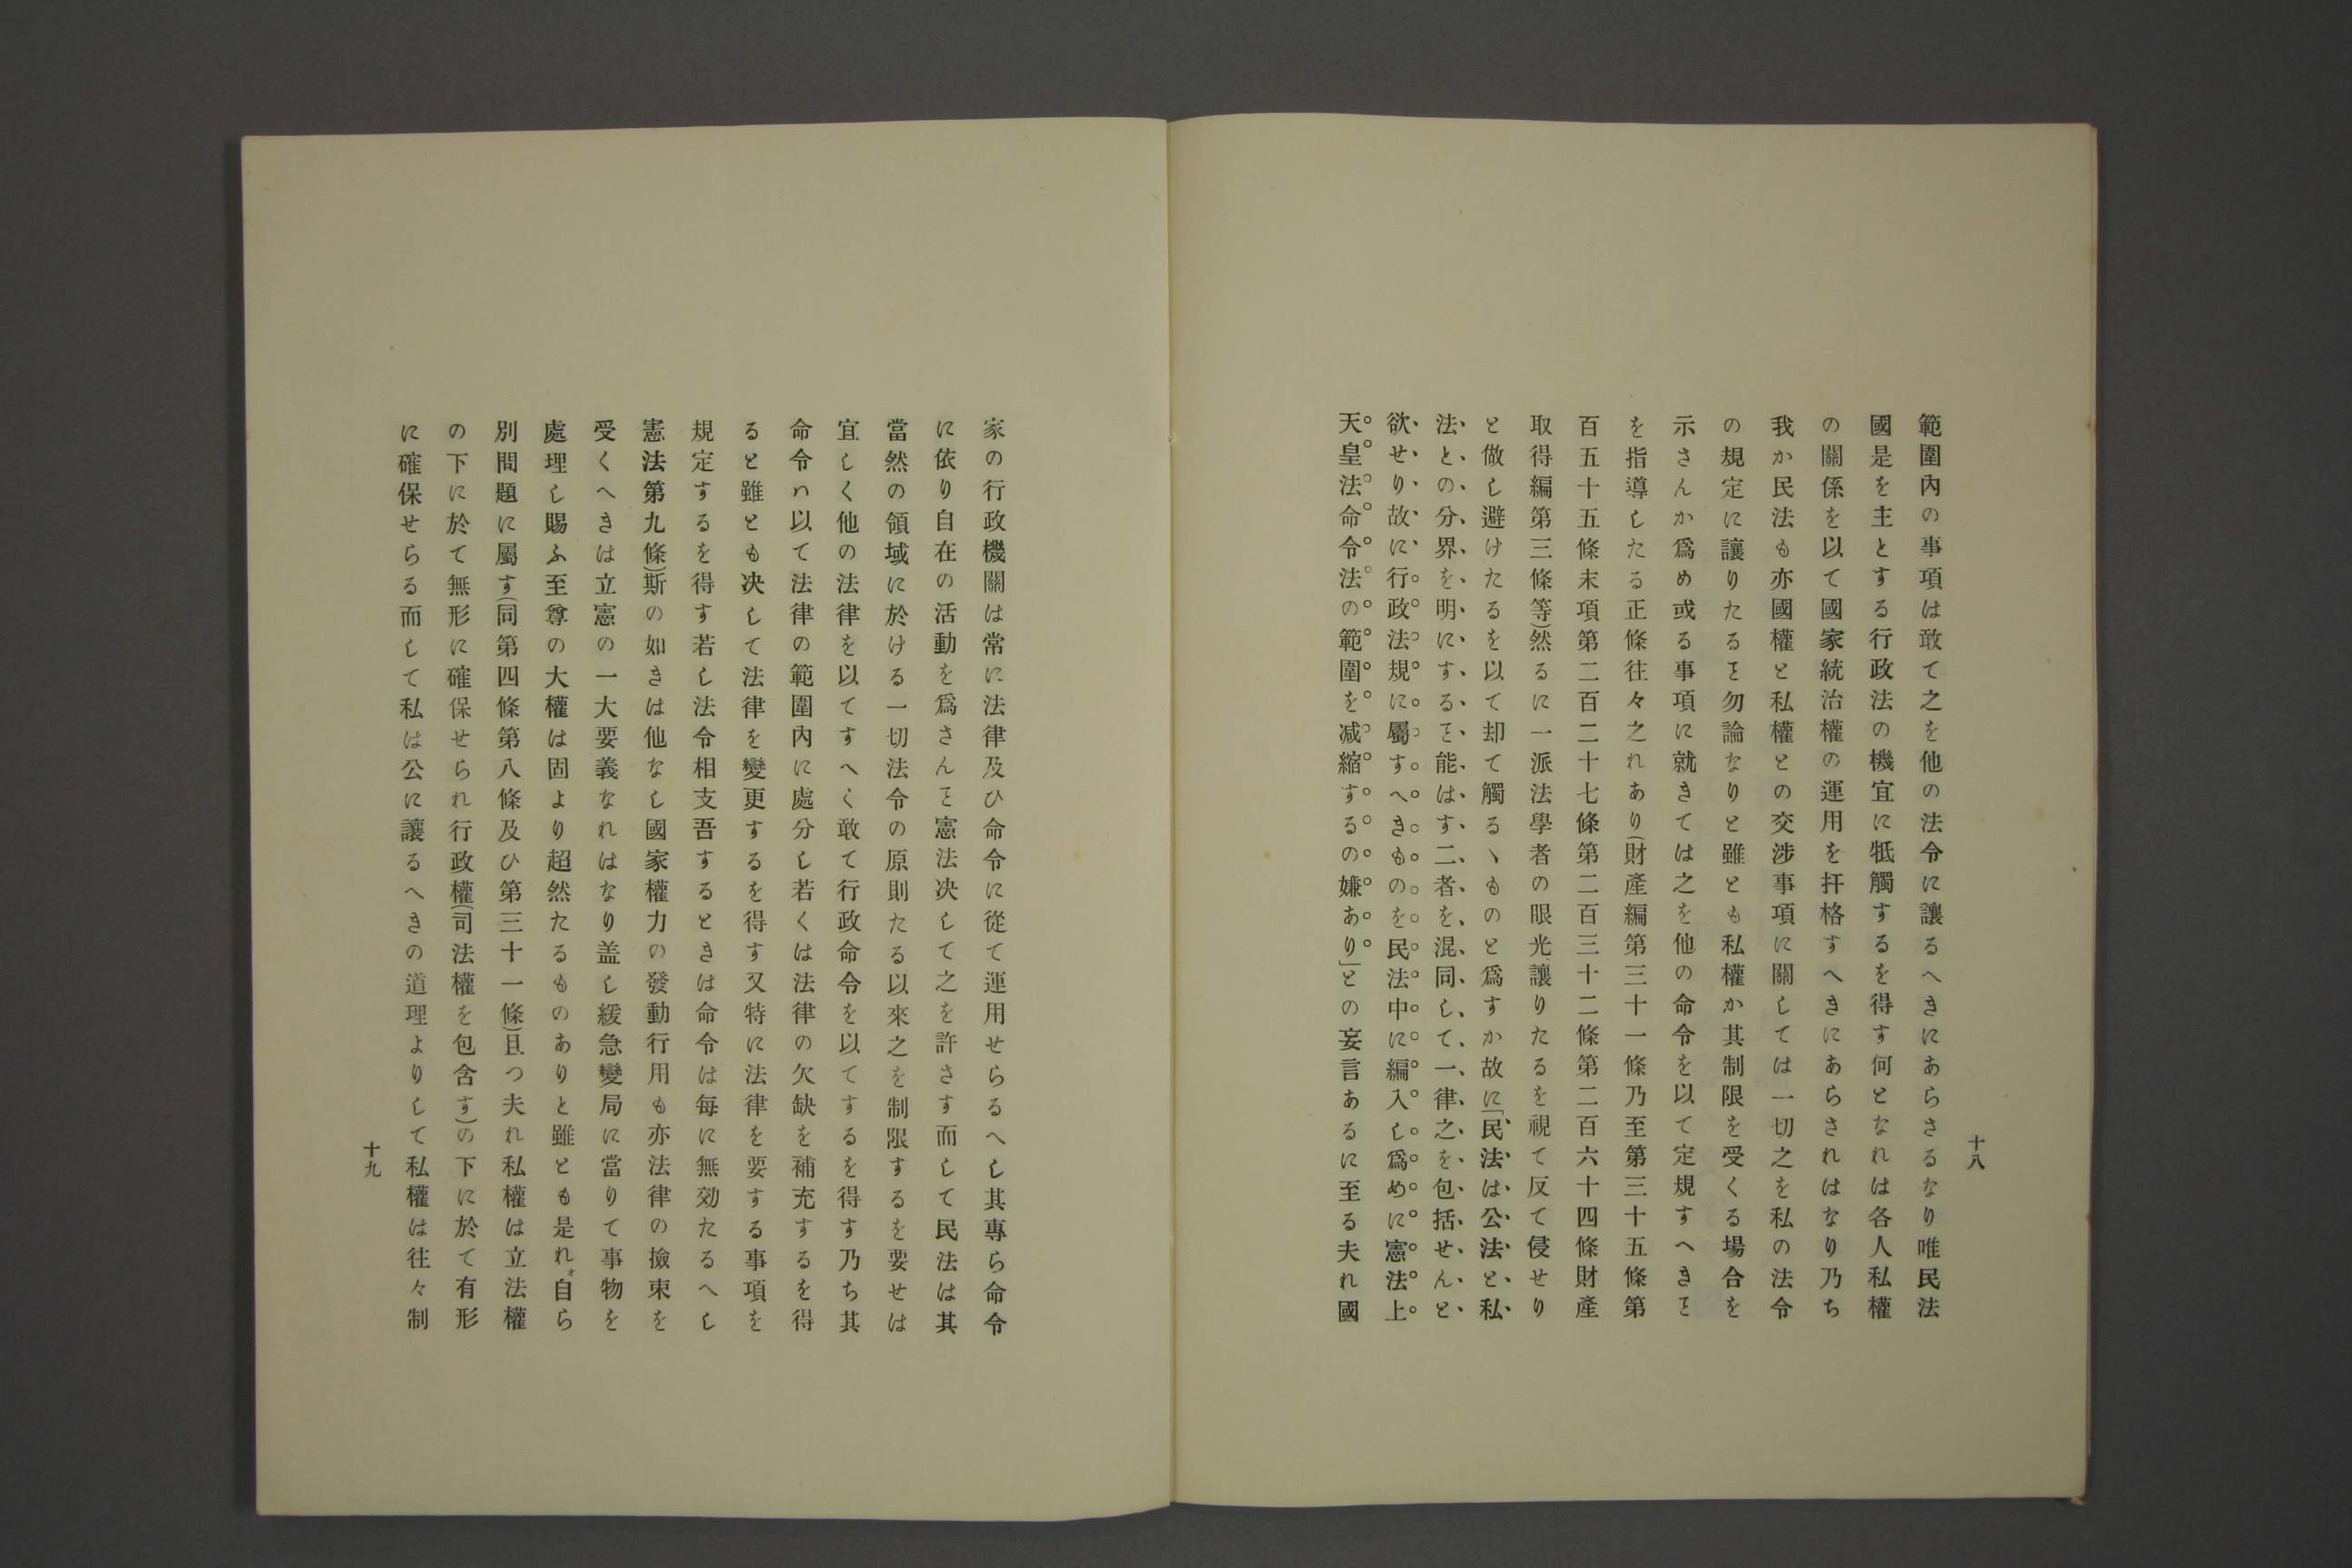 十八
範圍內の事項は敢て之を他の法令に讓るへきにあらさるなり唯民法
國是を主とする行政法の機宜に牴觸するを得す何となれは各人私權
の關係を以て國家統治權の運用を扞格すへきにあらされはなり乃ち
我か民法も亦國權と私權との交涉事項に關しては一切之を私の法令
の規定に讓りたるヿ勿論なりと雖とも私權か其制限を受くる塲合を
示さんか爲め或る事項に就きては之を他の命令を以て定規すへきヿ
を指導したる正條往々之れあり(財產編第三十一條乃至第三十五條第
百五十五條末項第二百二十七條第二百三十二條第二百六十四條財產
取得編第三條等)然るに一派法學者の眼光讓りたるを視て反て侵せり
と做し避けたるを以て却て觸るヽものと爲すか故に「民法は公法と私
法との分界を明にするヿ能はす二者を混同して一律之を包括せんと
欲せり故に行政法規に屬すへきものを民法中に編入し爲めに憲法上
天皇法命令法の範圍を减縮するの嫌あり」との妄言あるに至る夫れ國
家の行政機關は常に法律及ひ命令に從て運用せらるへし其專ら命令
に依り自在の活動を爲さんヿ憲法决して之を許さす而して民法は其
當然の領域に於ける一切法令の原則たる以來之を制限するを要せは
宜しく他の法律を以てすへく敢て行政命令を以てするを得す乃ち其
命令ハ以て法律の範圍內に處分し若くは法律の欠缺を補充するを得
ると雖とも决して法律を變更するを得す又特に法律を要する事項を
規定するを得す若し法令相支吾するときは命令は每に無効たるへし
憲法第九條)斯の如きは他なし國家權力の發動行用も亦法律の撿束を
受くへきは立憲の一大要義なれはなり盖し緩急變局に當りて事物を
處理し賜ふ至尊の大權は固より超然たるものありと雖とも是れ自ら
別問題に屬す(同第四條第八條及ひ第三十一條)且つ夫れ私權は立法權
の下に於て無形に確保せられ行政權(司法權を包含す)の下に於て有形
に確保せらる而して私は公に讓るへきの道理よりして私權は往々制
十九